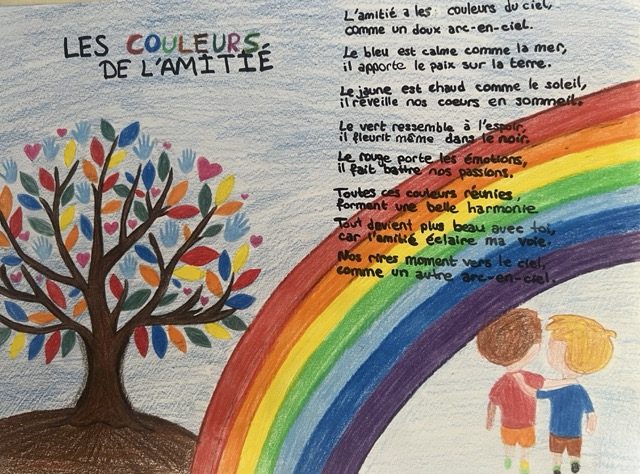 LES COULEURS
DE L'AMITIÉ
L'amitié a les couleurs du ciel,
comme un doux arc-en-ciel.
Le bleu est calme comme la mer,
il apporte le paix sur la terre.
Le jaune est chaud comme le soleil,
il réveille nos coeurs en sommeil.
Le vert ressemble à l'espoir,
il fleurit même dans le noir.
Le rouge porte les émotions,
il fait battre nos passions.
Toutes ces couleurs réunies,
forment une belle harmonie.
Tout devient plus beau avec toi,
car l'amitié éclaire ma voie.
Nos rires moment vers le ciel,
comme un autre arc-en-ciel.